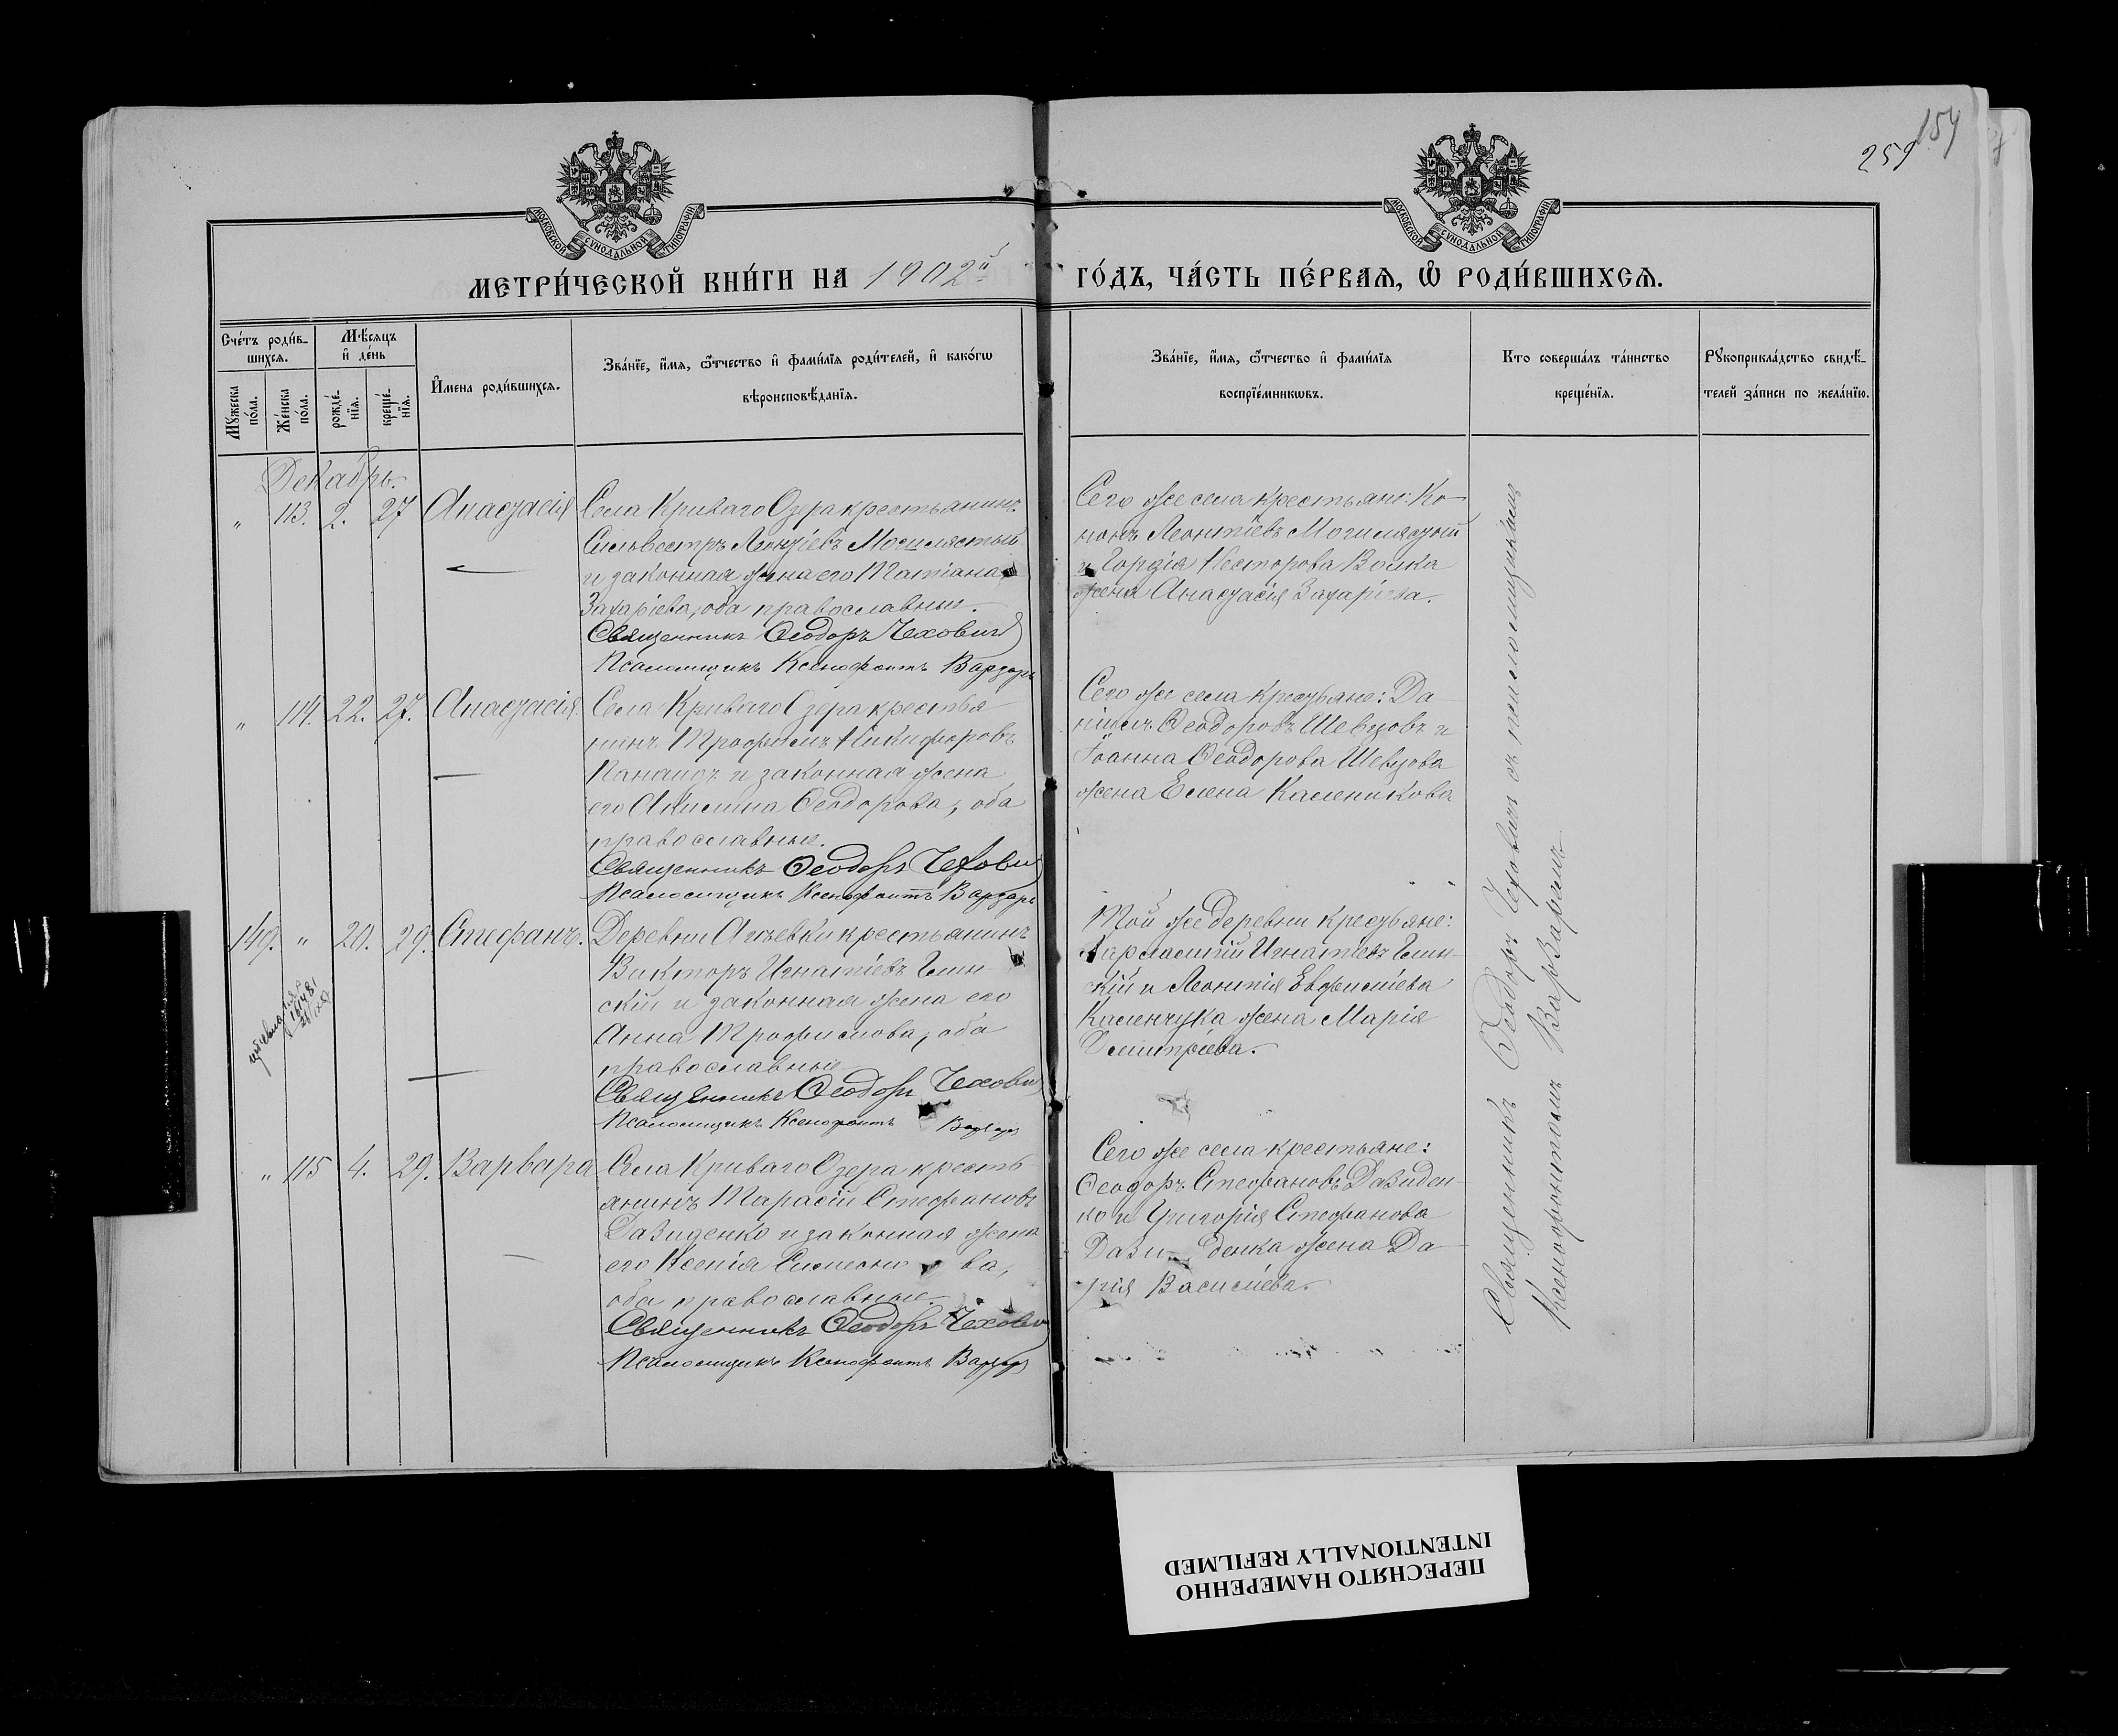 154
259
МОСКОВСКОЙ СУНОДАЛЬНОЙ ТИПОГРАФІИ
МОСКОВСКОЙ СУНОДАЛЬНОЙ ТИПОГРАФІИ
МЕТРИ́ЧЕСКОЙ КНИ́ГИ НА 1902й ГО́ДЪ, ЧА́СТЬ ПЕ́РВАЯ, Ѡ РОДИ́ВШИХСЯ.
Сче́тъ роди́в-
шихся.
Мꙋ́жеска
по́ла.
Же́нска
по́ла.
Мѣ́сяцъ
и де́нь
рожде́-
нїя.
креще́-
нїя.
Имена роди́вшихся.
Зва́нїе, имя, ѻтчество и фами́лїя роди́телей, и како́гѡ
вѣроисповѣ́данїя.
Зва́нїе, имя, ѻтчество и фами́лїя
воспрїе́мникѡвъ.
Кто соверша́лъ та́инство
креще́нїя.
Рꙋкоприкла́дство свидѣ́-
телей за́писи по жела́нїю.
Декабрь.
" 113. 2. 27 Анастасія
Села Криваго Озера крестьянинъ
Сильвестръ Леонтіевъ Могилястый
и законная жена его Татіана
Захаріева, оба православные.
Священникъ Ѳеодоръ Чехович
Псаломщикъ Ксенофонтъ Варзарь
Сего же села крестьяне: Ко-
нонъ Леонтіевъ Могилястый
и Гордія Несторова Волка
жена Анастасія Захаріева.
" 114. 22. 27. Анастасія.
Села Криваго Озера крестья
нинъ Трофимъ Никифоровъ
и законная жена
его Акилина Ѳеодорова, оба
православные.
Священникъ Ѳеодоръ Чехович
Псаломщикъ Ксенофонтъ Варзарь
Сего же села крестьяне: Да-
ніилъ Ѳеодоровъ Шевцовъ и
Іоанна Ѳеодорова Шевцова
жена Елена Каленикова
149. " 20. 29. Стефанъ.
Деревни крестьянинъ
Викторъ Игнатіевъ
скій и законная жена его
Анна Трофимова, оба
православные
Священникъ Ѳеодоръ Чехович
Псаломщикъ Ксенофонтъ Варзарь
Той же деревни крестьяне:
Игнатіевъ
скій и Леонтія Евфиміева
Каленчука жена Марія
Димитріева.
" 115 4. 29. Варвара
Села Криваго Озера кресть-
янинъ Тарасій Стефановъ
Давиденко и законная жена
его Ксенія Симеоно ва,
оба православные.
Священникъ Ѳеодоръ Чехович
Псаломщикъ Ксенофонтъ Варзарь
Сего же села крестьяне:
Ѳеодоръ Стефановъ Давиден-
ко и Григорія Стефанова
Дави- денка жена Да-
рія Василіева.
Священникъ Ѳеодоръ Чеховичъ съ псаломщикомъ
Ксенофонтомъ Варзаремъ
ПЕРЕСНЯТО НАМЕРЕННО
INTENTIONALLY REFILMED